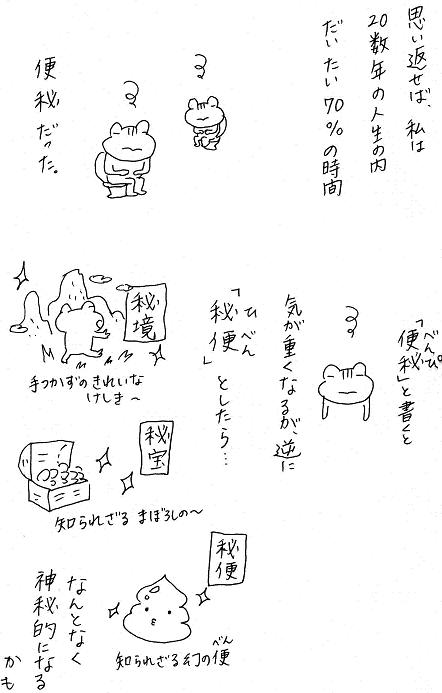 思い返せば、私は
20数年の人生の内
だいたい70%の時間
便秘だった。
「便秘」と書くと
べんぴ
気が重くなるが、逆に
「秘便」としたら…
ひべん
秘境
手つかずのきれいな
けしき〜
秘宝
知られざるまぼろしの〜
秘便
知られざる幻の便
べん
なんとなく
神秘的になる
かも